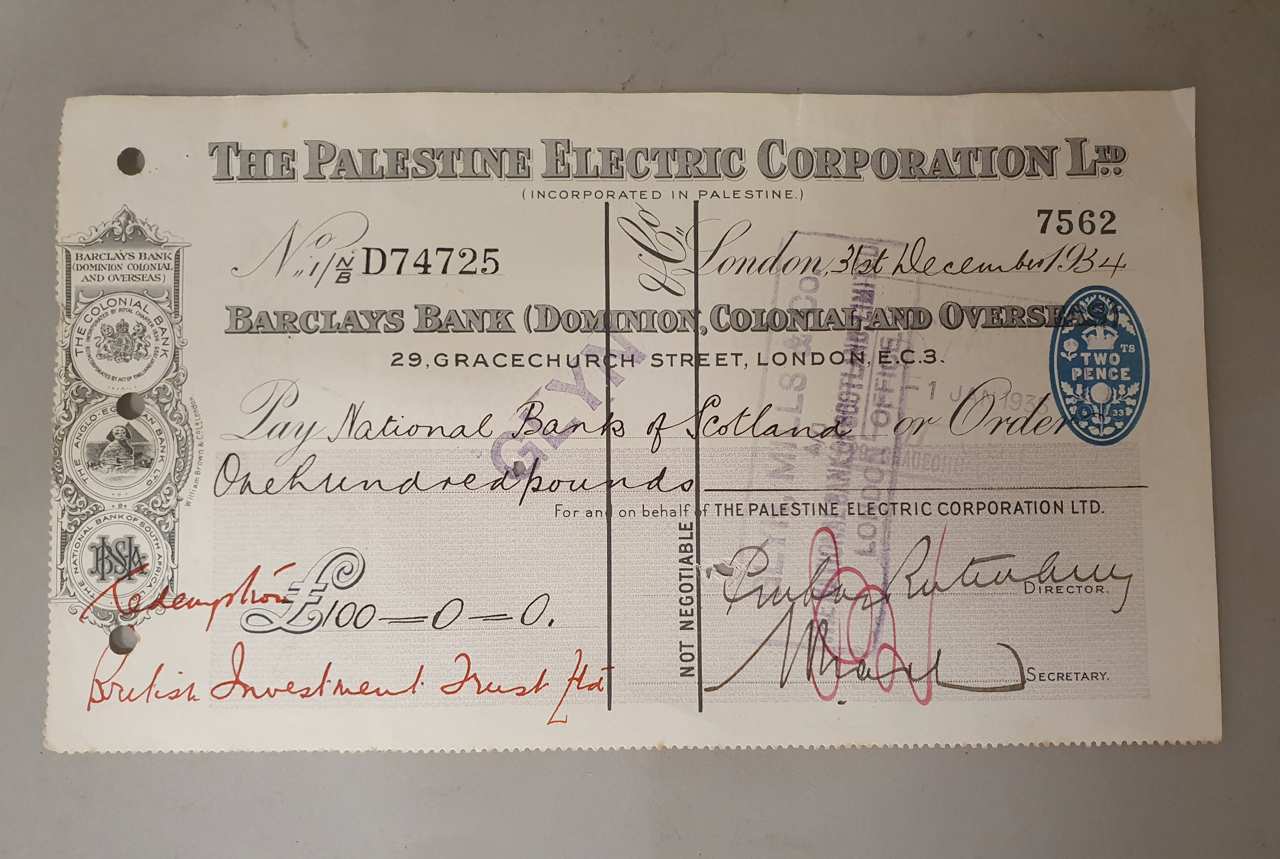 THE PALESTINE ELECTRIC CORPORATION LTD.
(INCORPORATED IN PALESTINE.)
7562
No 1/N/B D74725
& Co
London, 31st December 1934
BARCLAYS BANK
(DOMINION COLONIAL
AND OVERSEAS)
THE COLONIAL BANK
BARCLAYS BANK (DOMINION, COLONIAL AND OVERSEAS)
29, GRACECHURCH STREET, LONDON, E.C.3.
TWO
PENCE
TS
6 33
GLYN
GLYN, MILLS & CO
LONDON OFFICE
Pay National Bank of Scotland or Order
THE ANGLO-EGYPTIAN BANK LTD
One hundred pounds
For and on behalf of THE PALESTINE ELECTRIC CORPORATION LTD.
THE NATIONAL BANK OF SOUTH AFRICA
NOT NEGOTIABLE
DIRECTOR.
Redemption
£100-0-0.
British Investment Trust Ltd
SECRETARY.